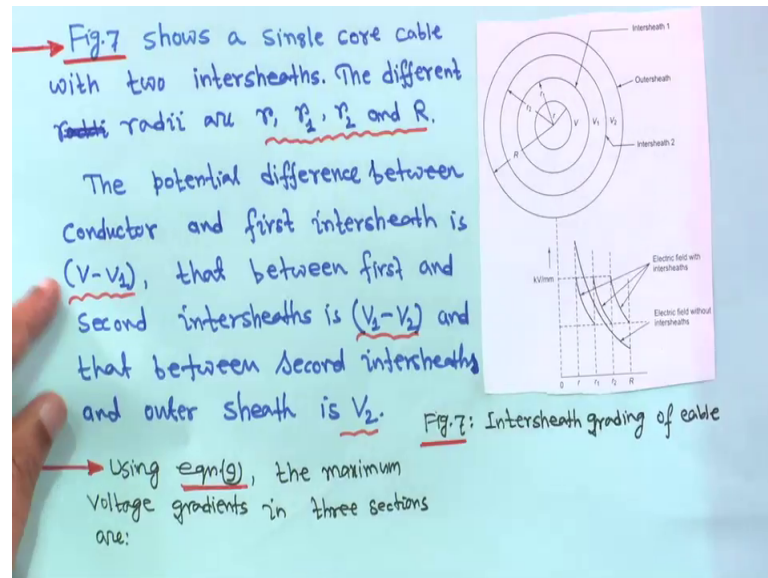 Fig.7 shows a single core cable
with two intersheaths. The different
radii are r, r1, r2 and R.
The potential difference between
conductor and first intersheath is
(V-V1), that between first and
second intersheaths is (V1-V2) and
that between second intersheaths
and outer sheath is V2.
Using eqn(9), the maximum
voltage gradients in three sections
are:
Intersheath 1
Outersheath
r1
r2
r
V
V1
V2
R
Intersheath 2
kV/mm
Electric field with
intersheaths
Electric field without
intersheaths
0 r r1 r2 R
Fig.7: Intersheath grading of cable